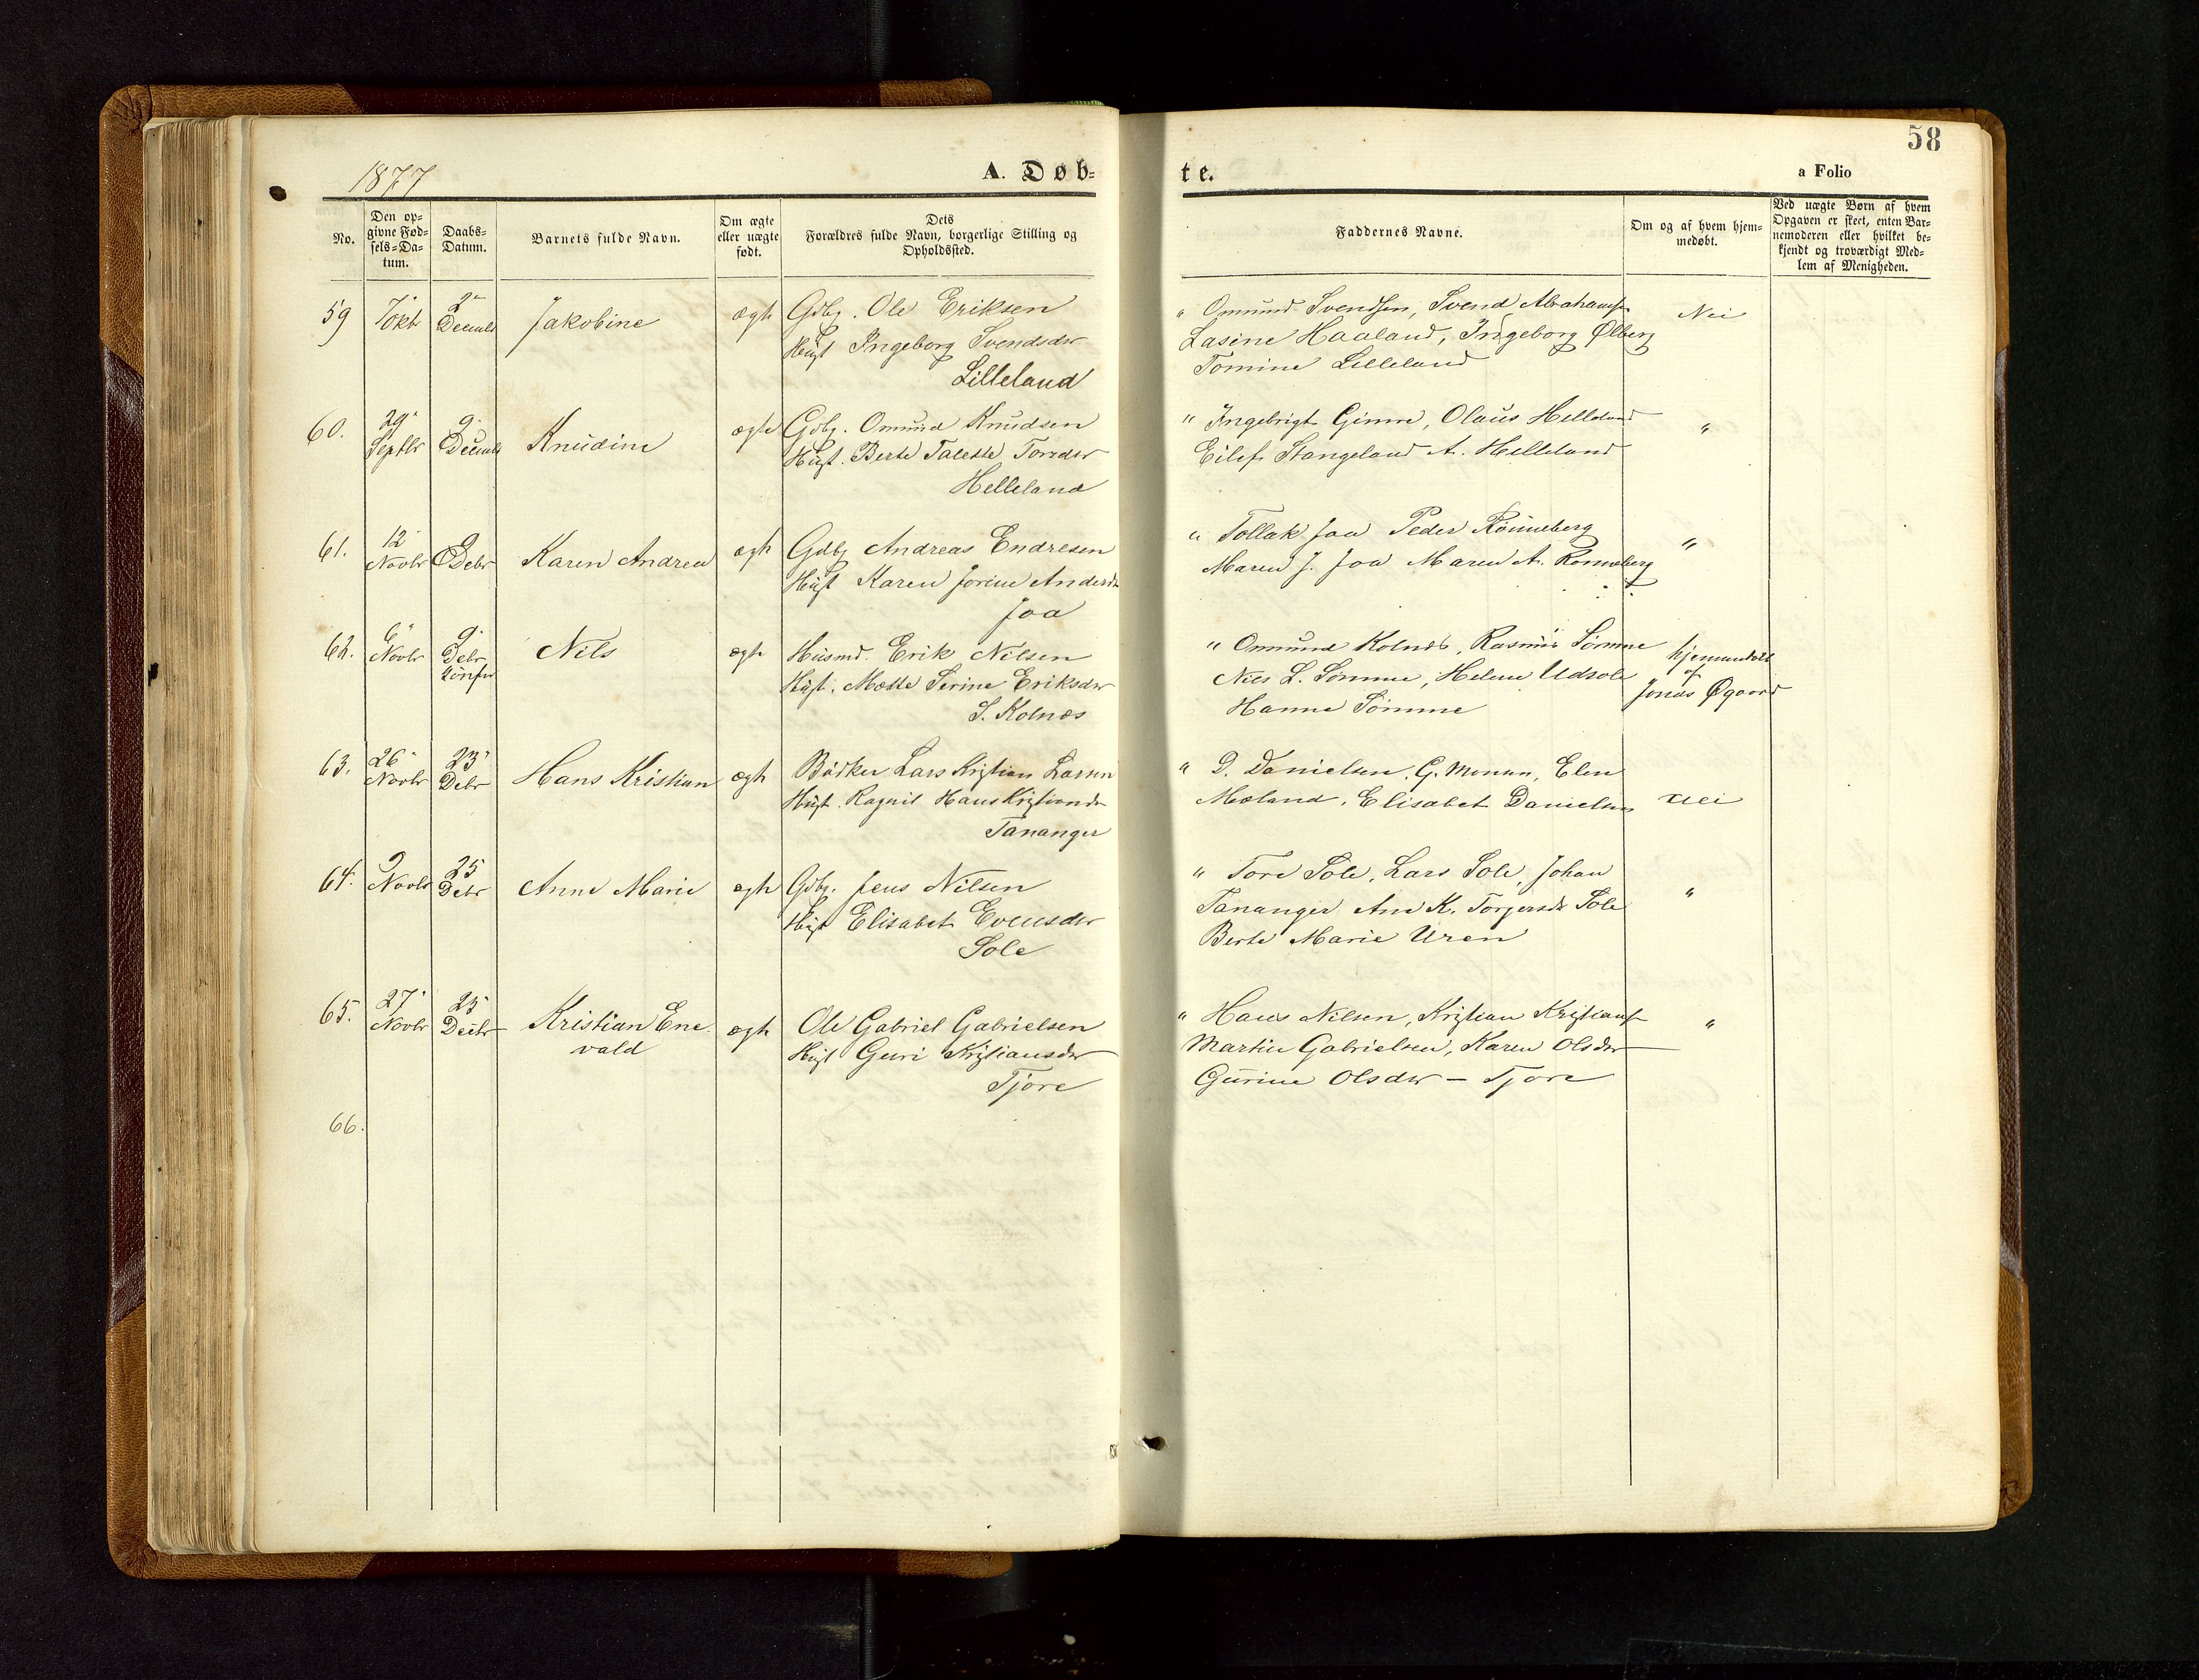 58
1877
A. Døb=
te.
a Folio
No.
Den op=
givne Fød=
sels=Da=
tum.
Daabs=
Datum.
Barnets fulde Navn.
Om ægte
eller uægte
født.
Dets
Forældres fulde Navn, borgerlige Stilling og
Opholdssted.
Faddernes Navne.
Om og af hvem hjem=
medøbt.
Ved uægte Børn af hvem
Opgaven er skeet, enten Bar=
nemoderen eller hvilket be=
kjendt og troværdigt Med=
lem af Menigheden.
59
7
Oktr
2
Decmbr
Jakobine
ægte
Gdbg. Ole Eriksen
Hust Ingeborg Svendsdtr
Lilleland
" Omund Svendsen, Svend Abrahams
Lasine Haaland, Ingeborg Ølberg
Tomine Lilleland
Nei
60.
29
Septbr
9
Decmbr
Knudine
ægte
Gdbg. Omund Knudsen
Hust. Berte Talette
Helleland
" Ingebrigt Gimre, Olaus Helleland
Eilef Stangeland A. Helleland
"
61.
12
Novbr
9
Debr
Karen Andrea
ægte
Gdbg Andreas Endresen
Hust Karen Jorine Andersdtr
Joa
" Tollak Joa Peder Rønneberg
Maren J. Joa Maren A. Rønneberg
"
62.
6
Novbr
9
Debr
Nils
ægte
Husmd. Erik Nilsen
Hust. Mætte Serine Eriksdtr
S. Kolnes
" Omund Kolnes, Rasmus Sømme
Niels L. Sømme, Helene Udsole
Hanne Sømme
hjemmedøbt
af
Jonas Øgaard
63.
26
Novbr
23
Debr
Hans Kristian
ægte
Bødker Lars Kristian Larsen
Hust. Ragnil Hans Kristiansdr
Tananger
" D. Danielsen, G. Monsen, Elen
Mæland, Elisabet Danielsen
Nei
64.
9
Novbr
25
Debr
Anne Marie
ægte
Gdbg. Jens Nilsen
Hust Elisabet Evensdtr
Sole
" Tore Sole, Lars Sole, Johan
Tananger Ane K. Torgersdr Sole
Berte Marie Uren
"
65.
27
Novbr
25
Decbr
Kristian Ene
vald
ægte
Ole Gabriel Gabrielsen
Hust Guri Kristiansdtr
Tjore
" Hans Nilsen, Kristian Kristians
Martin Gabrielsen, Karen Olsdtr
Gurine Olsdtr – Tjore
"
66.